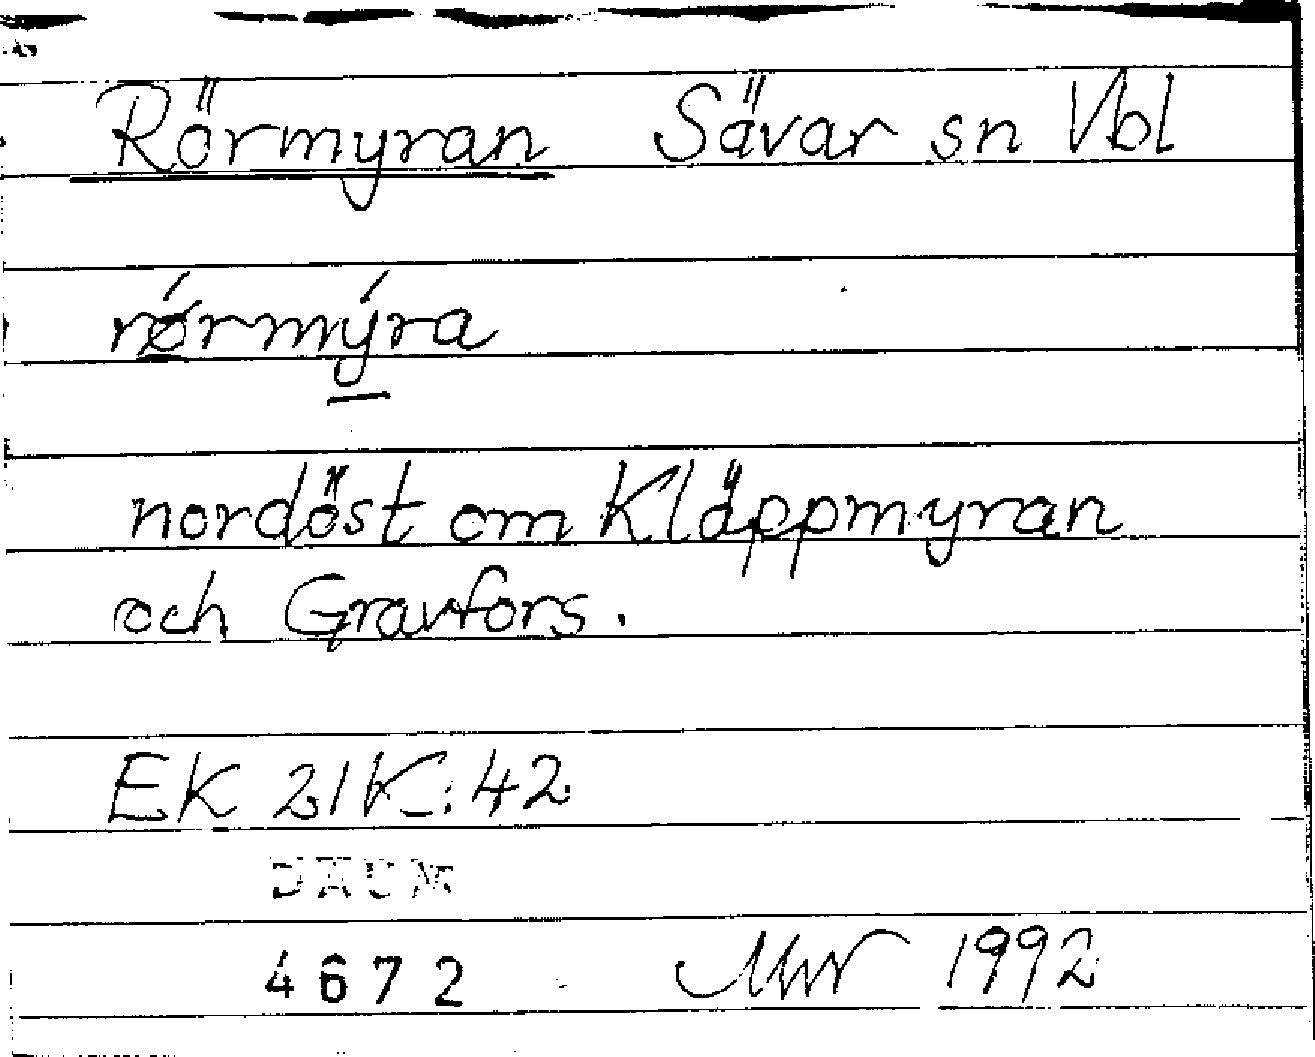 Rörmyran Sävar sn Vbl
rǿrmýra
nordöst om Kläppmyran
och Gravfors.
EK 21K:42
DAUM
4672 1992